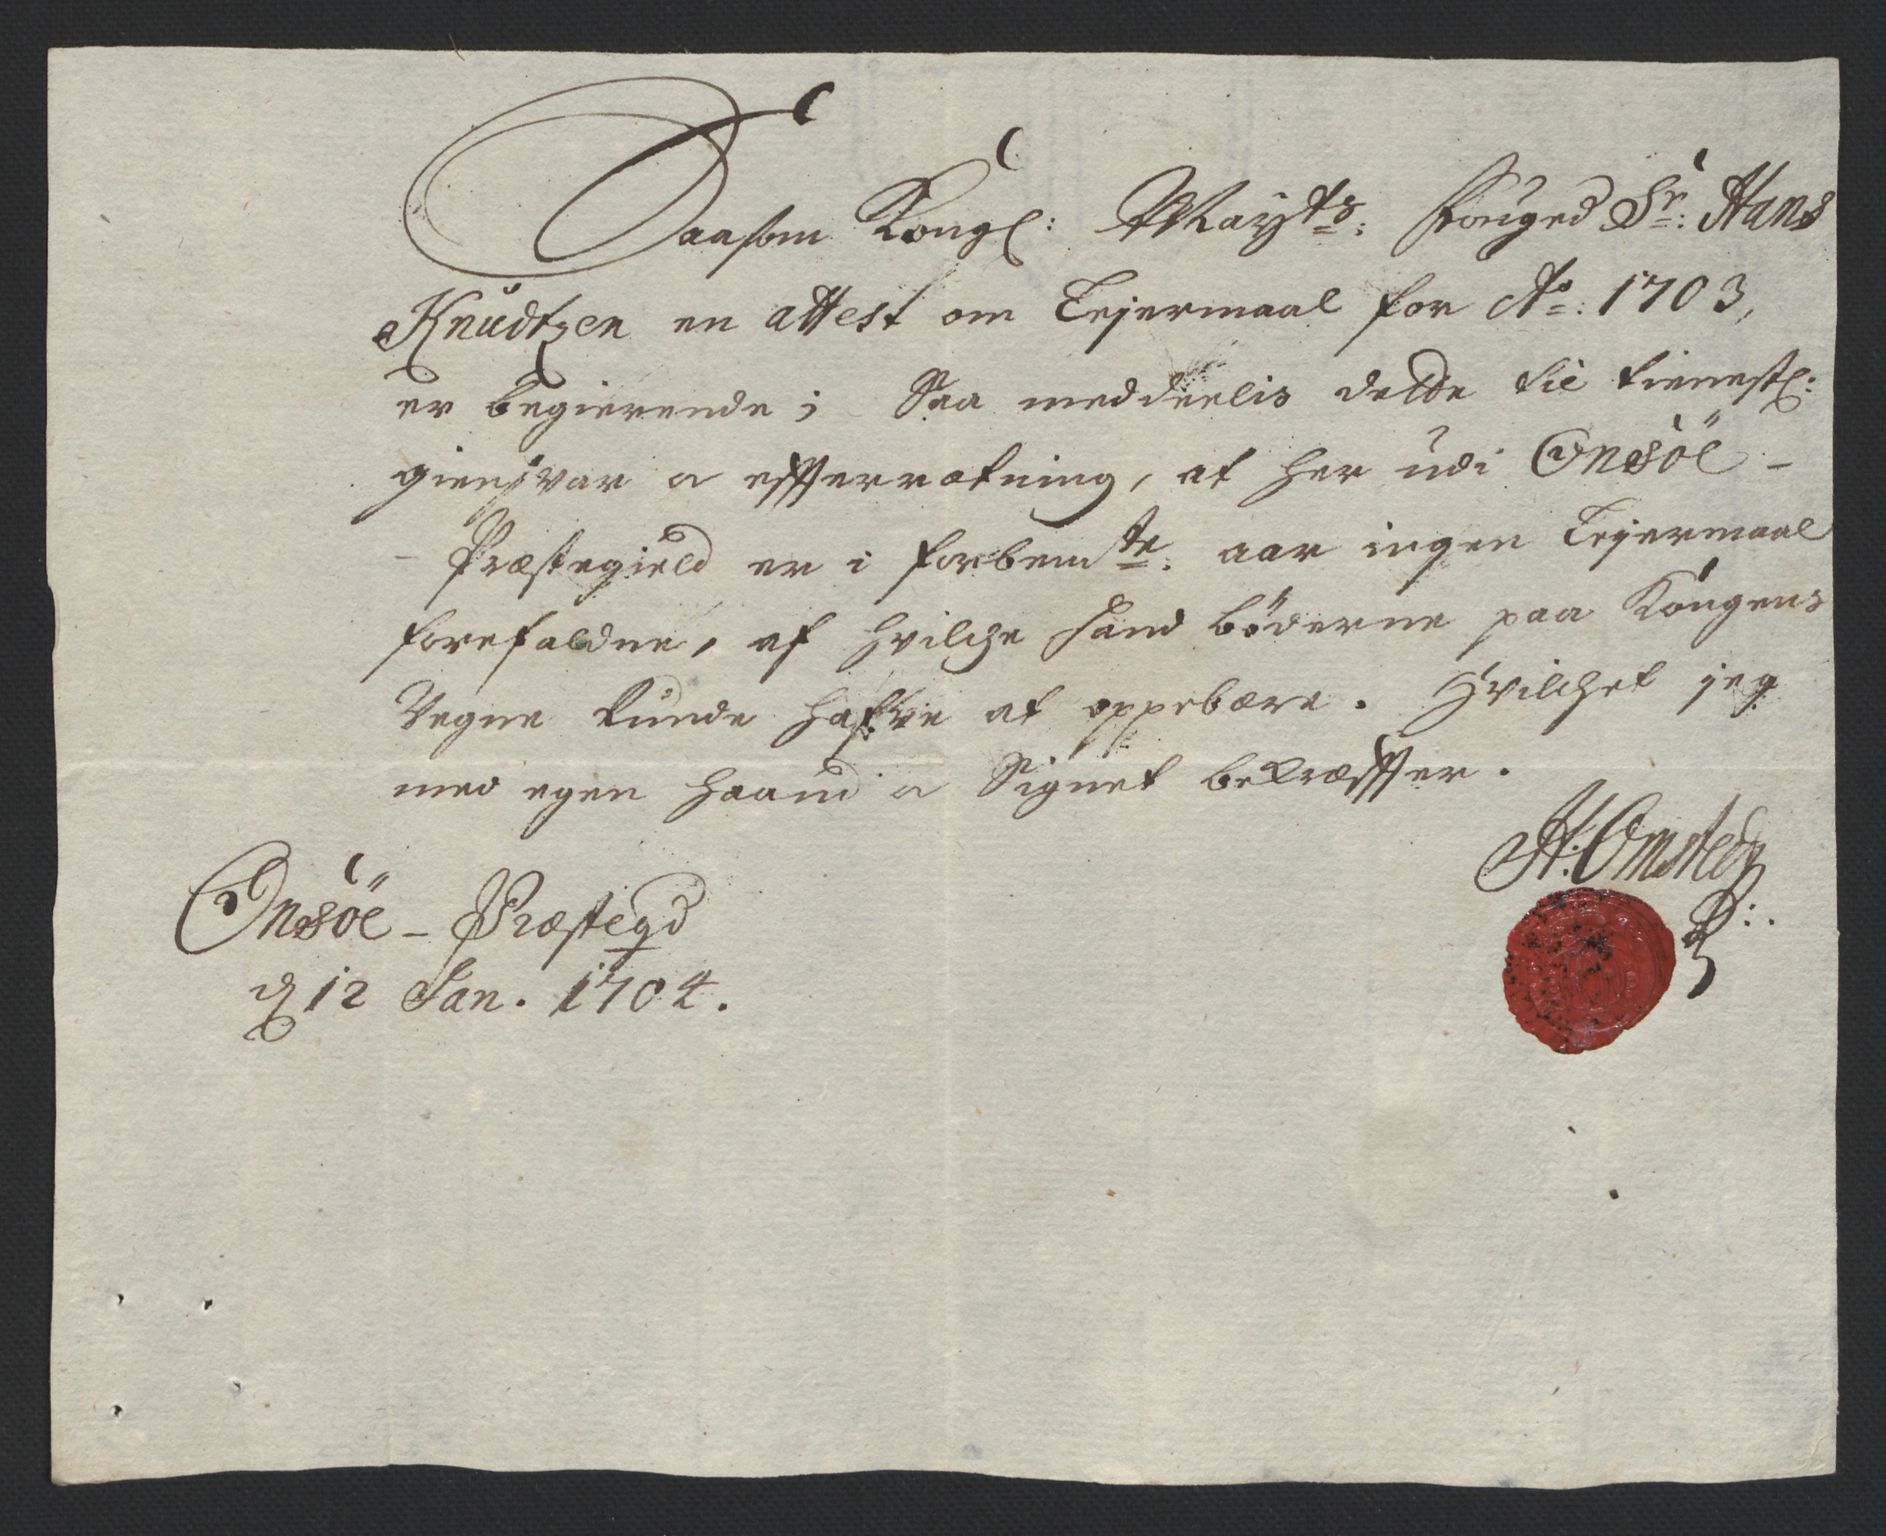 Saasom Kongl: Mayts: Fouged Sr: Hans
Knudtzen en attest om Leyermaal for Ao: 1703,
er begierende; Saa meddeelis dette til tienestl:
giensvar a effterrætning, at her udi Onsöe -
- Præstegield er i forbemte: aar ingen Leyermaal
forefaldne, af hvilche hand böderne paa Kongens
Vegne kunde hafve at oppebære. Hvilchet jeg
med egen haand a Signet bekræffter.
H: Omsted
Onsöe - Præstegd
d 12 Jan. 1704.